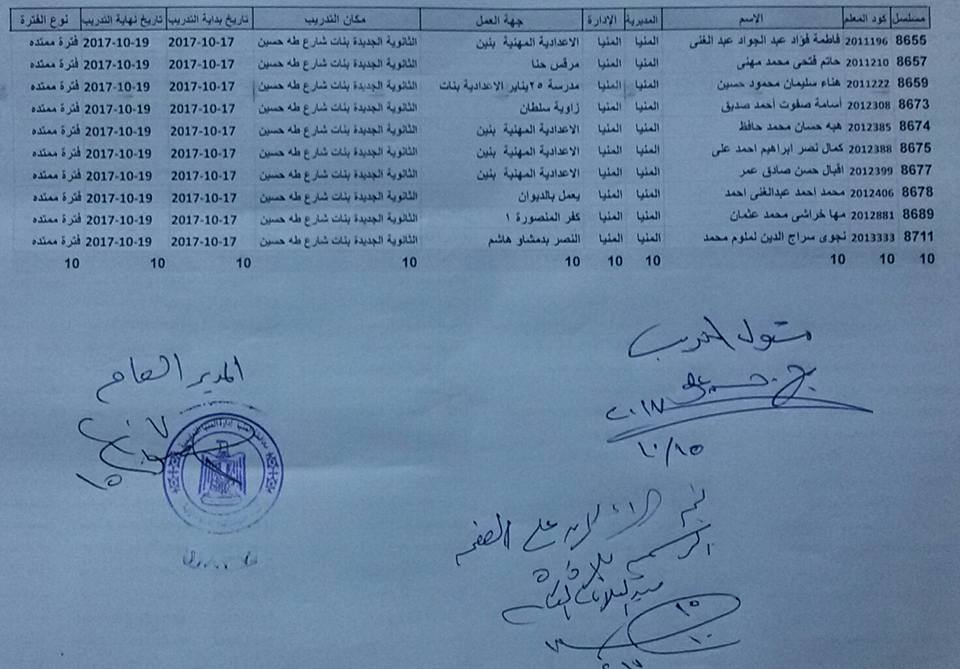 مسلسل كود المعلم الاسم المديرية الإدارة جهة العمل مكان التدريب تاريخ بداية التدريب تاريخ نهاية التدريب نوع الفترة
8655 2011196 فاطمة فؤاد عبد الجواد عبد الغنى المنيا المنيا الاعدادية المهنية بنين الثانوية الجديدة بنات شارع طه حسين 2017-10-17 2017-10-19 فترة ممتده
8657 2011210 حاتم فتحى محمد مهنى المنيا المنيا مرقس حنا الثانوية الجديدة بنات شارع طه حسين 2017-10-17 2017-10-19 فترة ممتده
8659 2011222 هناء سليمان محمود حسين المنيا المنيا مدرسة ٢٥يناير الاعدادية بنات الثانوية الجديدة بنات شارع طه حسين 2017-10-17 2017-10-19 فترة ممتده
8673 2012308 أسامة صفوت أحمد صديق المنيا المنيا زاوية سلطان الثانوية الجديدة بنات شارع طه حسين 2017-10-17 2017-10-19 فترة ممتده
8674 2012385 هبه حسان محمد حافظ المنيا المنيا الاعدادية المهنية بنين الثانوية الجديدة بنات شارع طه حسين 2017-10-17 2017-10-19 فترة ممتده
8675 2012388 كمال نصر ابراهيم احمد على المنيا المنيا الاعدادية المهنية بنين الثانوية الجديدة بنات شارع طه حسين 2017-10-17 2017-10-19 فترة ممتده
8677 2012399 اقبال حسن صادق عمر المنيا المنيا الاعدادية المهنية بنين الثانوية الجديدة بنات شارع طه حسين 2017-10-17 2017-10-19 فترة ممتده
8678 2012406 محمد احمد عبدالغنى احمد المنيا المنيا يعمل بالديوان الثانوية الجديدة بنات شارع طه حسين 2017-10-17 2017-10-19 فترة ممتده
8689 2012881 مها خراشى محمد عثمان المنيا المنيا كفر المنصورة ١ الثانوية الجديدة بنات شارع طه حسين 2017-10-17 2017-10-19 فترة ممتده
8711 2013333 نجوى سراج الدين لملوم محمد المنيا المنيا النصر بدمشاو هاشم الثانوية الجديدة بنات شارع طه حسين 2017-10-17 2017-10-19 فترة ممتده
10 10 10 10 10 10 10 10 10 10
مسئول التدريب
٢٠١٧
١٠/١٥
المدير العام
على الصفحة
الرسمية